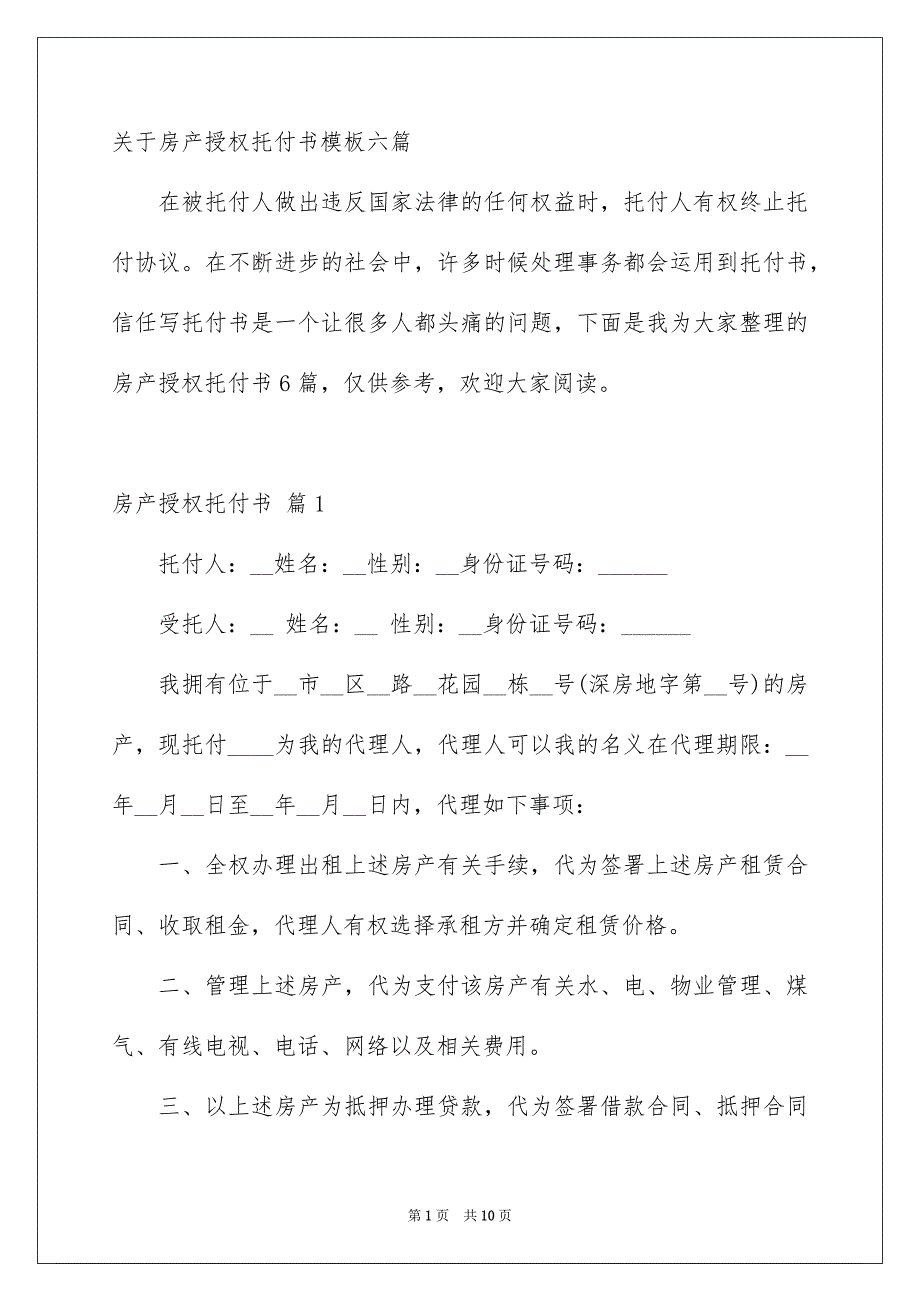 关于房产授权托付书模板六篇
在被托付人做出违反国家法律的任何权益时，托付人有权终止托
付协议。在不断进步的社会中，许多时候处理事务都会运用到托付书，
信任写托付书是一个让很多人都头痛的问题，下面是我为大家整理的
房产授权托付书6篇，仅供参考，欢迎大家阅读。
房产授权托付书 篇1
托付人：__姓名：__性别：__身份证号码：______
受托人：__ 姓名：__ 性别：__身份证号码：______
我拥有位于__市__区__路__花园__栋__号(深房地字第__号)的房
产，现托付____为我的代理人，代理人可以我的名义在代理期限：__
年__月__日至__年__月__日内，代理如下事项：
一、全权办理出租上述房产有关手续，代为签署上述房产租赁合
同、收取租金，代理人有权选择承租方并确定租赁价格。
二、管理上述房产，代为支付该房产有关水、电、物业管理、煤
气、有线电视、电话、网络以及相关费用。
三、以上述房产为抵押办理贷款，代为签署借款合同、抵押合同
第 1 页 共 10 页